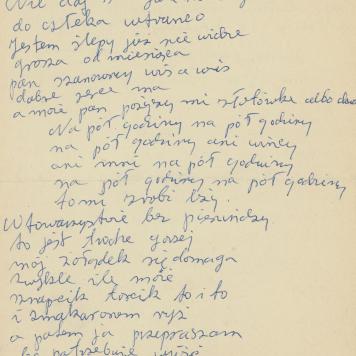 Nie daj
do człeka wtranco
Jestem ślepy już nie widzę
grosza od miesiąca
pan szanowny wis a wis
dobre serce ma
a może pan pożyczy mi złotówkę albo dwa
Na pół godziny na pół godziny
na pół godziny ani więcej
ani mni na pół godziny
na pół godziny na pół godziny
to mi zrobi lży.
W towarzystwie bez pieniędzy
to jest trochę gorzej
mój żołądek się domaga
zwykle ile może
sznapcik torcik to i to
i z makaronem ryż
a potem ja przepraszam
potrzebuję